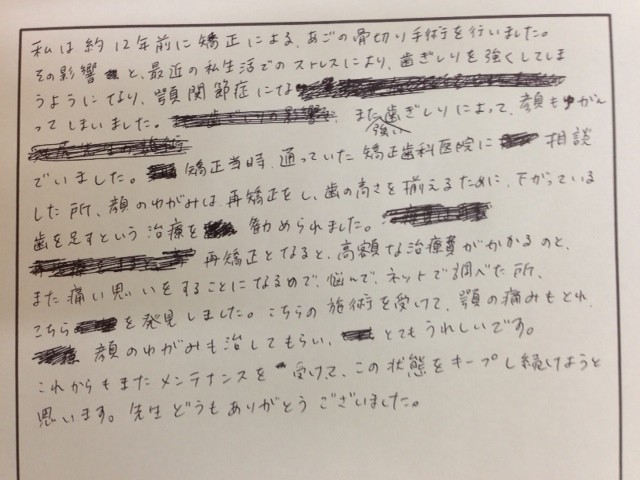 私は約12年前に矯正による、あごの骨切り手術を行いました。
その影響と、最近の私生活でのストレスにより、歯ぎしりを強くしてしま
うようになり、顎関節症にな
ってしまいました。また強い歯ぎしりによって、顔もゆがん
でいました。矯正当時、通っていた矯正歯科医院に相談
した所、顔のゆがみは、再矯正をし、歯の高さを揃えるために、下がっている
歯を足すという治療を勧められました。
再矯正となると、高額な治療費がかかるのと、
また痛い思いをすることになるので、悩んで、ネットで調べた所、
こちらを発見しました。こちらの施術を受けて、顎の痛みもとれ、
顔のゆがみも治してもらい、とてもうれしいです。
これからもまたメンテナンスを受けて、この状態をキープし続けようと
思います。先生どうもありがとうございました。